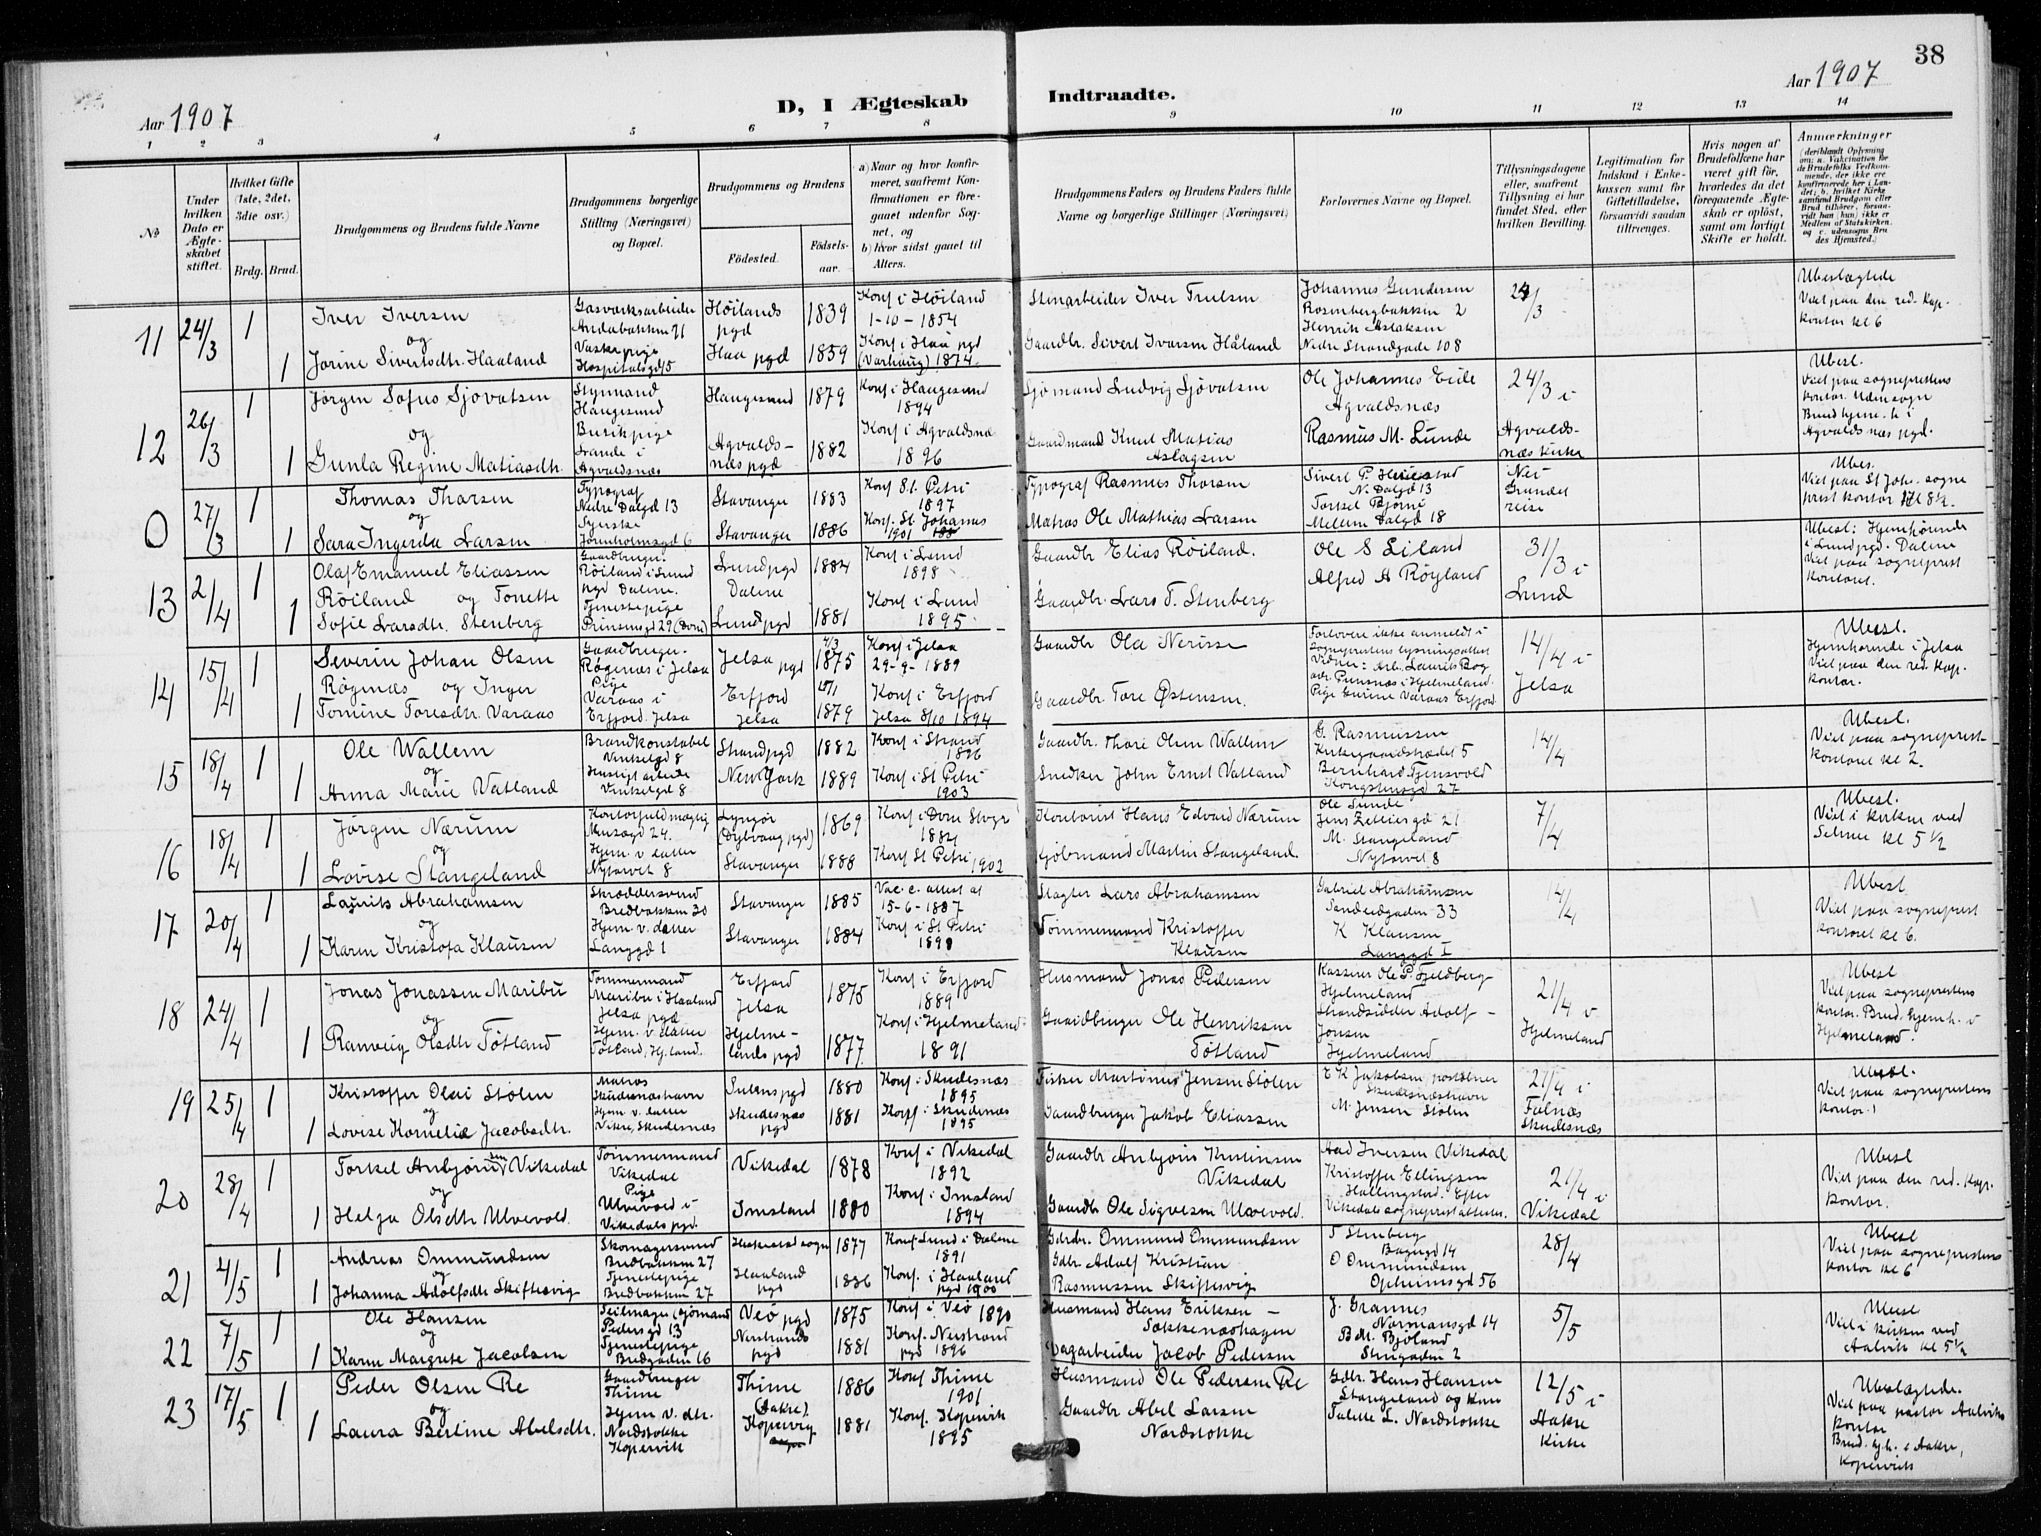 38
Aar 1907
D, I Ægteskab
Indtraadte.
Aar 1907
1 2 3 4 5 6 7 8 9 10 11 12 13 14
№
Under hvilken Dato er Ægteskabet stiftet.
Hvilket Gifte (1ste, 2det, 3die osv.)
Brdg. Brud.
Brudgommens og Brudens fulde Navne
Brudgommens borgerlige Stilling (Næringsvei) og Bopæl.
Brudgommens og Brudens
Fødested.
Fødsels-aar.
a) Naar og hvor konfirmeret, saafremt Konfirmationen er foregaaet udenfor Sognet, og
b) hvor sidst gaaet til Alters.
Brudgommens Faders og Brudens Faders fulde Navne og borgerlige Stillinger (Næringsvei)
Forlovernes Navne og Bopæl.
Tillysningsdagene eller, saafremt Tillysning ei har fundet Sted, efter hvilken Bevilling.
Legitimation for Indskud i Enkekassen samt for Giftetilladelse, forsaavidt saadan tiltrænges.
Hvis nogen af Brudefolkene har været gift før, hvorledes da det foregaaende Ægteskab er opløst, samt om lovligt Skifte er holdt.
Anmærkninger
(deriblandt Oplysning om: a. Vakcination for de Brudefolks Vedkommende, der ikke ere konfirmerede her i Landet; b. hvilket Kirkesamfund Brudgom eller Brud tilhører, forsaavidt han (hun) ikke er Medlem af Statskirken, og c. udensogns Brudes Hjemsted.)
11 24/3 1 Iver Iversen Gasværksarbeider Andabakken 71 Høilands pgd 1839 Konf i Høiland 1-10-1854 Stenarbeider Iver Trulsen Johannes Gundersen Rosenbergbakken 2 24/3 Ubeslægtede
og
1 Jorine Sivertsdtr. Haaland Vaskepige Hospitalsgd 5 Haa pgd 1859 Konf i Haa pgd (Varhaug) 1874. Gaardbr. Sivert Iversen Håland Henrik Aslaksen Nedre Strandgade 108 Viet paa den red. Kap. kontor kl 6
12 26/3 1 Jørgen Sofus Sjovatsen Styrmand Haugesund Haugesund 1879 Konf i Haugesund 1894 Sjømand Ludvig Sjøvatsen Ole Johannes Eide Agvaldsnæs 24/3 i Ubesl. Viet paa sogneprestens kontor. Udensogn
og
1 Gunla Regine Matiasdtr. Agvaldsnæs Agvaldsnæs pgd 1882 Konf i Agvaldsnæs 1896 Gaardmand Knut Matias Aslagsen Rasmus M. Lunde Agvaldsnæs kirke Brud hjem. h i Agvaldsnæs pgd.
0 27/3 1 Thomas Tharsen Typograf Nedre Dalgd 13 Stavanger 1883 Konf St. Petri 1897 Typograf Rasmus Thorsen N. Dalgd 13 Ubes.
og
1 Sara Ingerda Larsen Syerske 6 Stavanger 1886 Konf. St. Johannes 1901 Matros Ole Mathias Larsen Torkel Bjørne Mellem Dalgd 18 Viet paa St Joh. sogneprest kontor kl 8½.
13 2/4 1 Olaf Emanuel Eliassen Røiland Gaardbruger. Røiland i Lund pgd Dalene. Lund pgd Dalene 1884 Konf i Lund 1898 Gaardbr Elias Røiland. Ole S Eiland 31/3 i Ubesl: Hjemhørende i Lund pgd. Dalene
og Tonette
1 Sofie Larsdtr. Stenberg Tjenestepige Prinsensgd 29 (Dom) Lund pgd 1881 Konf i Lund 1895 Gaardbr Lars T. Stenberg Alfred A Røyland Lund Viet paa sogneprest kontoret.
14 15/4 1 Severin Johan Olsen Røgenæs Gaardbruger. Røgenæs i Jelsa Jelsa pgd 4/3 1875 Konf i Jelsa 29-9-1889 Gaardbr Ola Nerisse Forlovere ikke anmeldt i 14/4 i Ubesl. Hjemhørende i Jelsa
og Inger
1 Tomine Toresdtr. Varaas Pige Varaas i Erfjord. Jelsa Erfjord Jelsa 1879 Konf i Erfjord Jelsa 8/10 1894 Gaardbr Tore Østensen. Pige Gurine Varaas Erfjord Jelsa Viet paa den red. Kap. kontor.
15 18/4 1 Ole Wallem Brandkonstabel Vinkelgd 8 Strand pgd 1882 Konf i Strand 1896 Gaardbr. Thore Olsen Wallem G. Rasmussen Kirkegaardstrædet 5 14/4 Ubesl.
og
1 Anna Marie Vatland Vinkelgd 8 New York 1889 Konf i St Petri 1903 Snedker John Ernst Vatland Bernhard Tjensvold Kongshusgd 27 Viet paa sogneprestkontoret kl 2.
16 18/4 1 Jørgen Nærum Kontorfuldmægtig Musægd 24. Lyngør (Dybvaag pgd) 1869 Konf i Dom Stvgr 1884 Kontorist Hans Edvard Nærum Ole Lunde Jens Zetlitsgd 21 7/4 Ubesl.
og
1 Lovise Stangeland Hjem. v. datter Nytorvet 8 Stavanger 1888 Konf St Petri 1902 Kjøbmand Martin Stangeland. M. Stangeland Nytorvet 8 Viet i kirken ved Selmer kl 5½
17 20/4 1 Laurits Abrahamsen Skræddersvend Bredbakken 20 Stavanger 1885 Vac. c. attest af 15-6-1887 Slagter Lars Abrahamsen Gabriel Abrahamsen Sandeidgaden 33 14/4 Ubesl
og
1 Karen Kristofa Klausen Hjem. v. datter Langgd 1 Stavanger 1884 Konf i St Petri 1898 Tømmermand Kristoffer Klausen K Klausen Langgd 1 Viet paa sogneprest kontoret kl 6.
18 24/4 1 Jonas Jonassen Maribu Tømmermand Maribu i Haaland Jelsa pgd Erfjord Jelsa 1875 Konf i Erfjord 1889 Husmand Jonas Pedersen Kasserer Ole P. Fjeldberg Hjelmeland 21/4 i Ubesl
og
1 Ranveig Olsdtr Tøtland Hjem. v. datter Tøtland, Hj.land. Hjelmelands pgd 1877 Konf i Hjelmeland 1891 Gaardbruger Ole Henriksen Tøtland Strandsidder Adolf Jonsen Hjelmeland Hjelmeland Viet paa sogneprestens kontor. Brud. hjemh. i Hjelmeland.
19 25/4 1 Kristoffer Olai Stølen Matros Skudesnæshavn Sulens pgd 1880 Konf. i Skudesnæs 1895 Fisker Martinus Jensen Stølen E K Jakobsen Skudesnæshavn 21/4 i Ubesl.
og
1 Lovise Kornelie Jacobsdtr. Hjem. v. datter Vikre, Skudesnæs Skudesnæs pgd 1881 Konf i Skudesnæs 1895 Gaardbruger Jakob Eliassen M. Jensen Stølen Falnæs Skudesnæs Viet paa sogneprestens kontor.
20 28/4 1 Torkel Anbjørnsen Vikedal Tømmermand Vikedal Vikedal 1878 Konf i Vikedal 1892 Gaardbr Anbjørn Kristensen Vikedal Aad Iversen Vikedal 21/4 i Ubesl
og
1 Helga Olsdtr Ulvevold. Pige Ulvevold i Vikedals pgd. Imsland 1880 Konf i Imsland 1894 Gaardbr Ole Sigvesen Ulvevold. Kristoffer Ellingsen Vikedal Viet paa den red. Kap. kontor.
21 4/5 1 Andreas Ommundsen Skomagersvend Bredbakken 27 Heskestad sogn 1877 Konf Lund i Dalene 1891 Gdrbr. Ommund Ommundsen T Stenberg Bagergd 14 28/4 Ubesl
og
1 Johanna Adolfsdtr Skiftesvig Tjenestepige Bredbakken 27 Haaland pgd 1886 Konf. i Haaland pgd 1900 Gdbr. Adolf Kristian Rasmussen Skiftesvig O Ommundsen Opheimsgd 56 Viet paa sogneprestens kontor kl 6
22 7/5 1 Ole Hansen Seilmager (sjømand) Pedersgd 13 Veø pgd 1875 Konf i Veø 1890 Husmand Hans Eriksen Sækkenæshagen J. Grannes Normansgd 14 5/5 Ubesl
og
1 Karen Margrete Jacobsen Tjenestepige Bredgaden 16 Nerstrands pgd 1881 Konf. Nerstrand pgd 1896 Dagarbeider Jacob Pedersen B M. Bjoland Viet i kirken ved Aalvik kl 5½
23 17/5 1 Peder Olsen Re Gaardbruger Thime Thime 1886 Konf Thime 1901 Husmand Ole Pedersen Re Gdbr. Hans Hansen Stangeland og Kone 12/5 i Ubeslægtede.
og
1 Laura Bertine Abelsdtr. Hjem. v. dtr. Nordstokke Kopervik (Aakre) Kopervig 1881 Konf. Kopervik 1895 Gaardbr Abel Larsen Nordstokke Talette L. Nordstokke Aakre Kirke Viet paa pastor Aalviks kontor Brud. hj.h. i Aakre, Kopervik